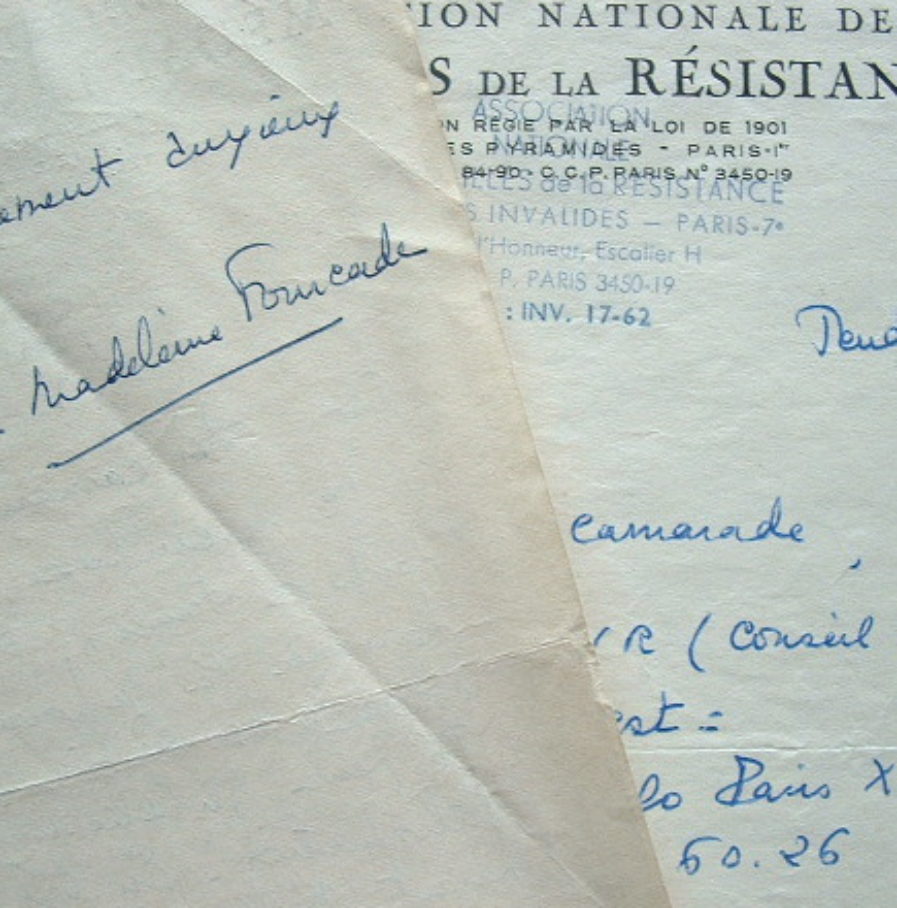 ement anxieux
Madeleine Fourcade
ION NATIONALE DE
S DE LA RÉSISTAN
ON RÉGIE PAR LA LOI DE 1901
ES PYRAMIDES - PARIS-1er
84-90 - C.C.P. PARIS N° 3450-19
ASSOCIATION
NATIONALE
ILLES de la RÉSISTANCE
S INVALIDES — PARIS-7e
l'Honneur, Escalier H
P. PARIS 3450-19
: INV. 17-62
camarade,
R ( Conseil
est =
Paris X
60.26